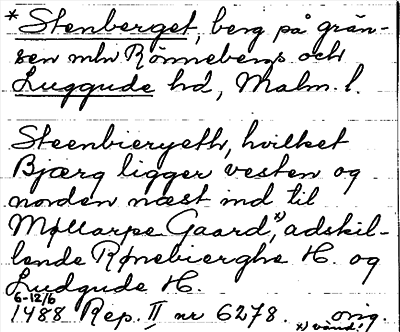 * Stenberget, berg på grän-
sen mln Rönnebergs och
Luggude hd, Malm. l.
Steenbieryeth, hvilket
Bjærg ligger vesten og
norden næst ind til
Møllarpe Gaard,x) adskil-
lende Rønebierghs H. og
Ludgude H.
6-12/6
1488 Rep. II nr 6278. orig.
x) vänd!